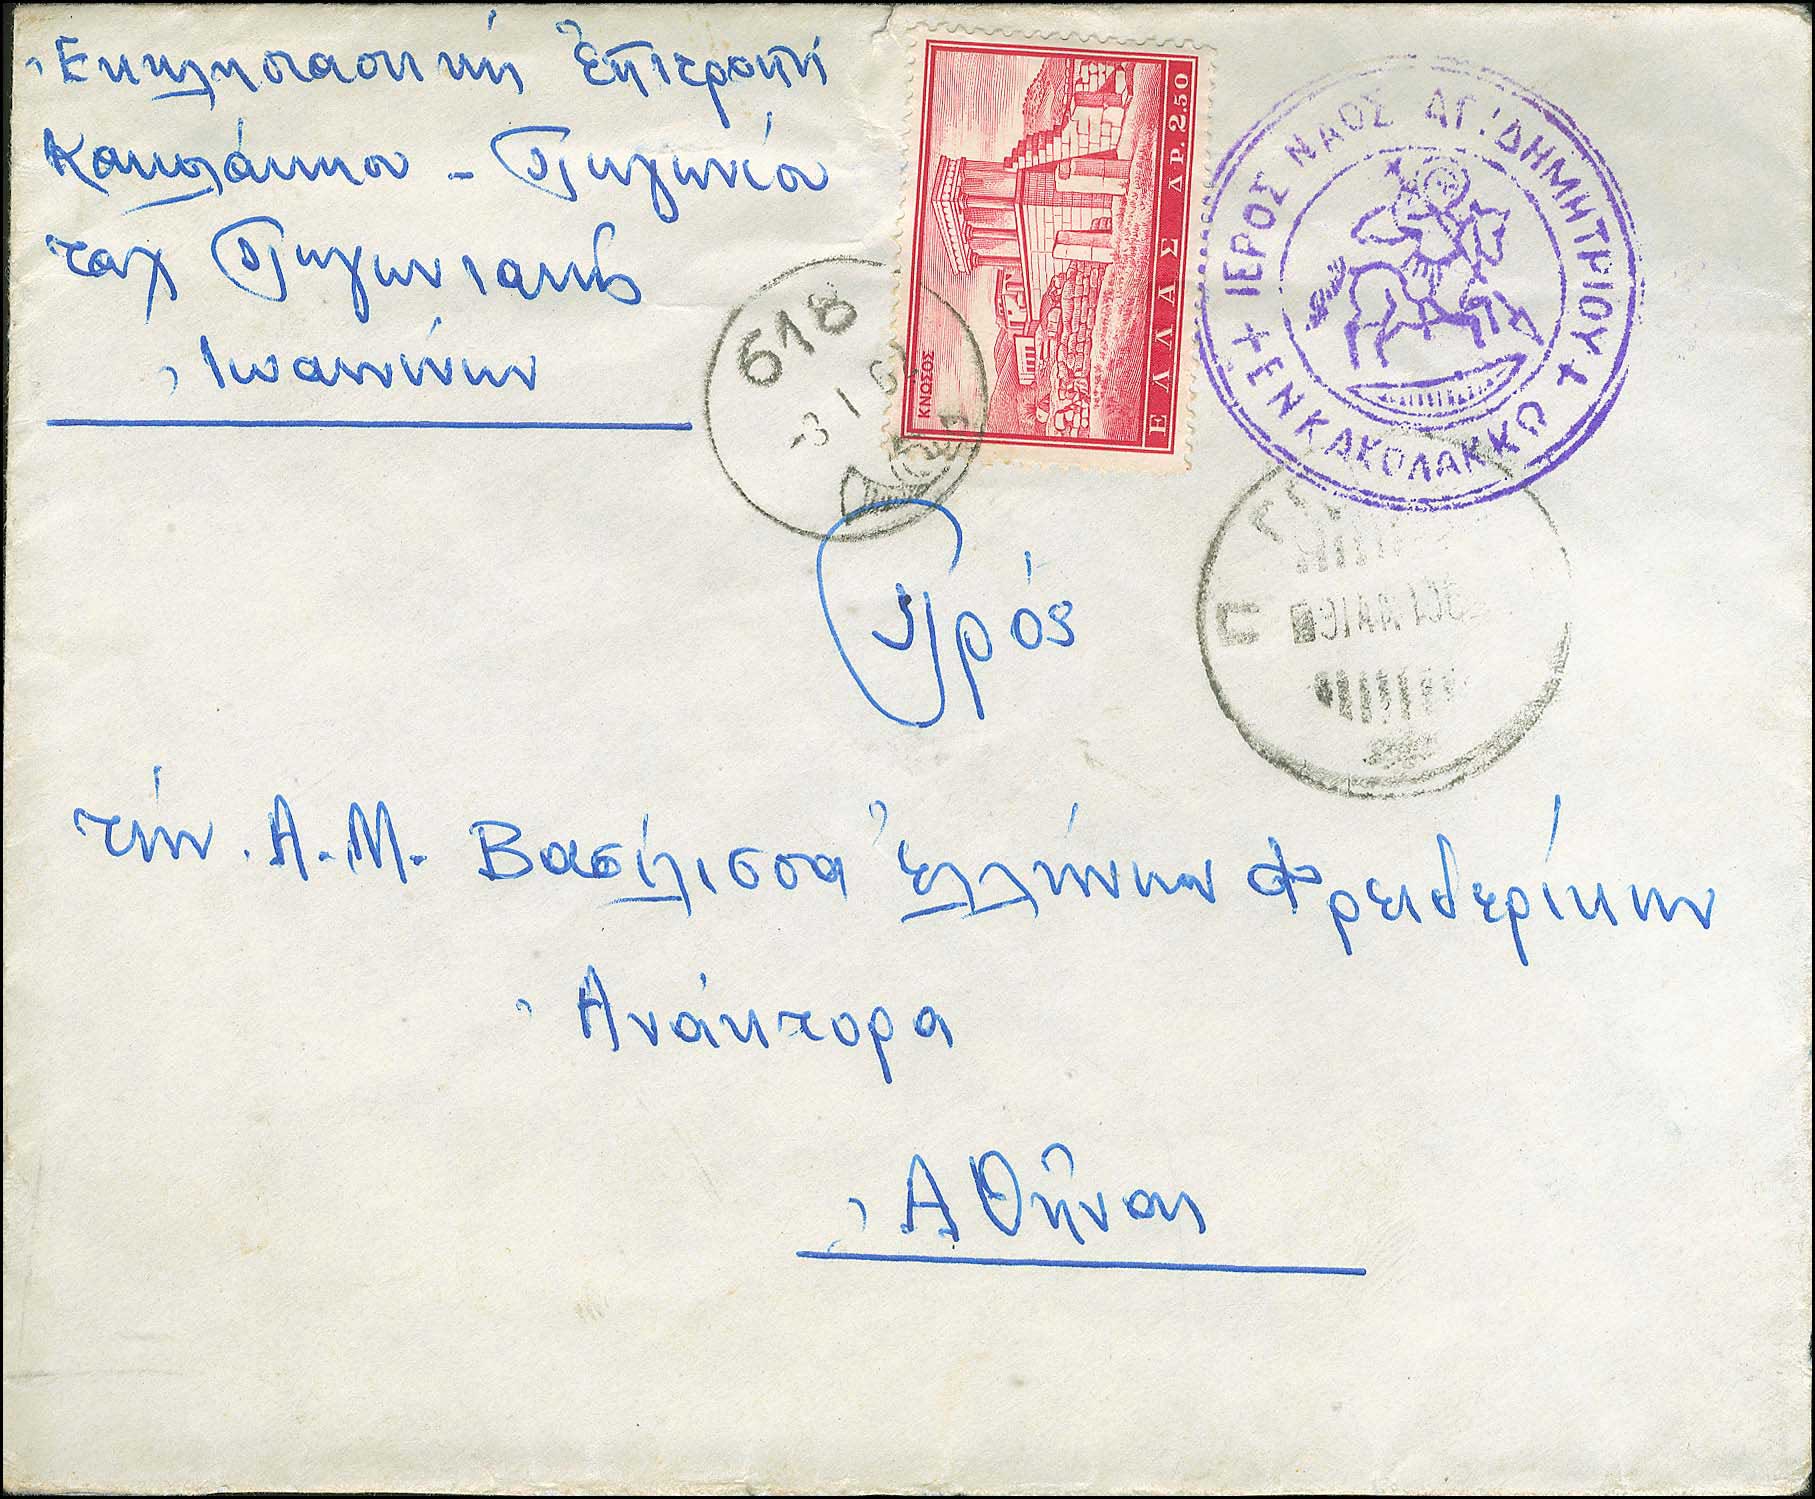 Ἐκκλησιαστική Ἐπιτροπή
Κακολάκκου - Πωγωνίου
ταχ Πωγωνιανῆς
Ἰωαννίνων
ΚΝΩΣΟΣ
ΕΛΛΑΣ ΔΡ. 2.50
618
-3 1 62
ΙΕΡΟΣ ΝΑΟΣ ΑΓ. ΔΗΜΗΤΡΙΟΥ
ΕΝ ΚΑΚΟΛΑΚΚΩ
Π
Πρός
τήν. Α.Μ. Βασίλισσα Ἑλλήνων Φρειδερίκην
Ἀνάκτορα
Ἀθῆναι